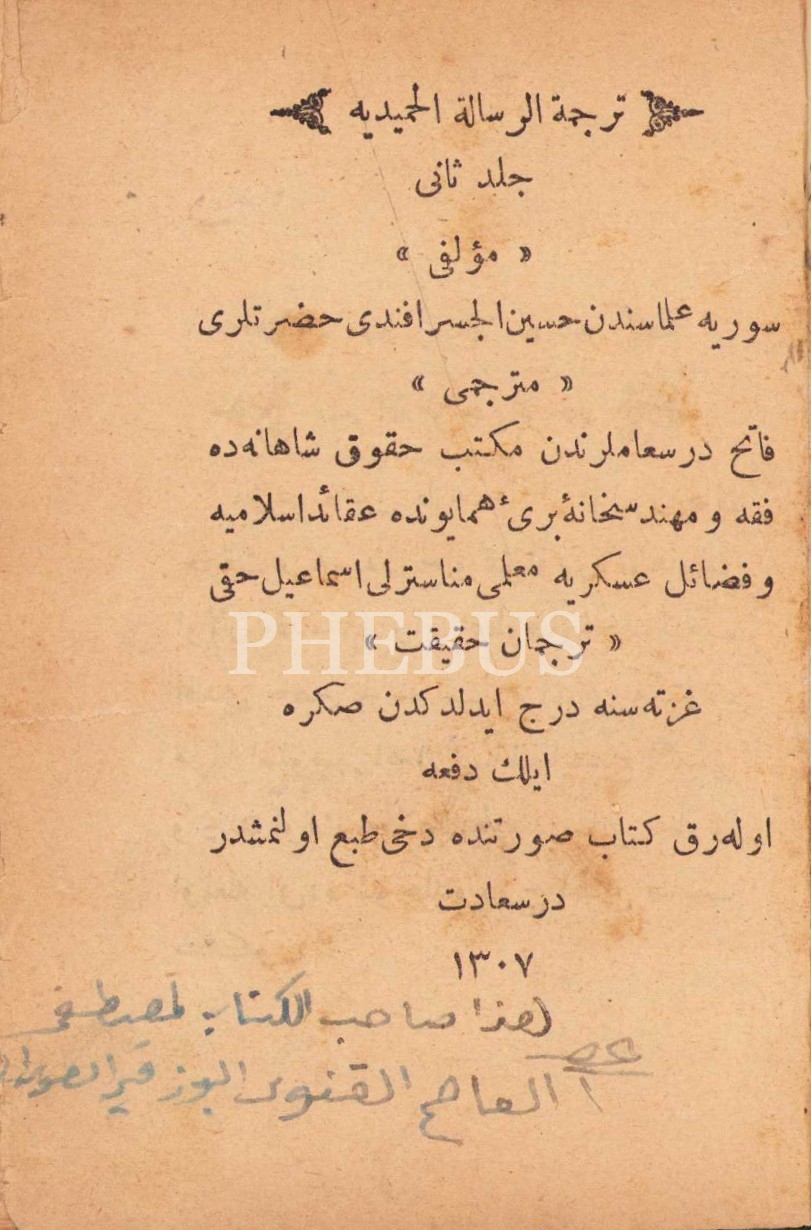 ترجمة الرسالة الحميديه
جلد ثانى
« مؤلفى »
سوريه علماسندن حسين الجسر افندى حضرتلرى
« مترجمى »
فاتح درسعاملرندن مكتب حقوق شاهانه‌ده
فقه و مهندسخانهٔ برىٔ همايونده عقائد اسلاميه
و فضائل عسكريه معلمى مناسترلى اسماعيل حقى
« ترجمان حقيقت »
PHEBUS
غزته‌سنه درج ايدلدكدن صكره
ايلك دفعه
اوله‌رق كتاب صورتنده دخى طبع اولنمشدر
درسعادت
١٣٠٧
هذا صاحب الكتاب لمصطفى
القنوى